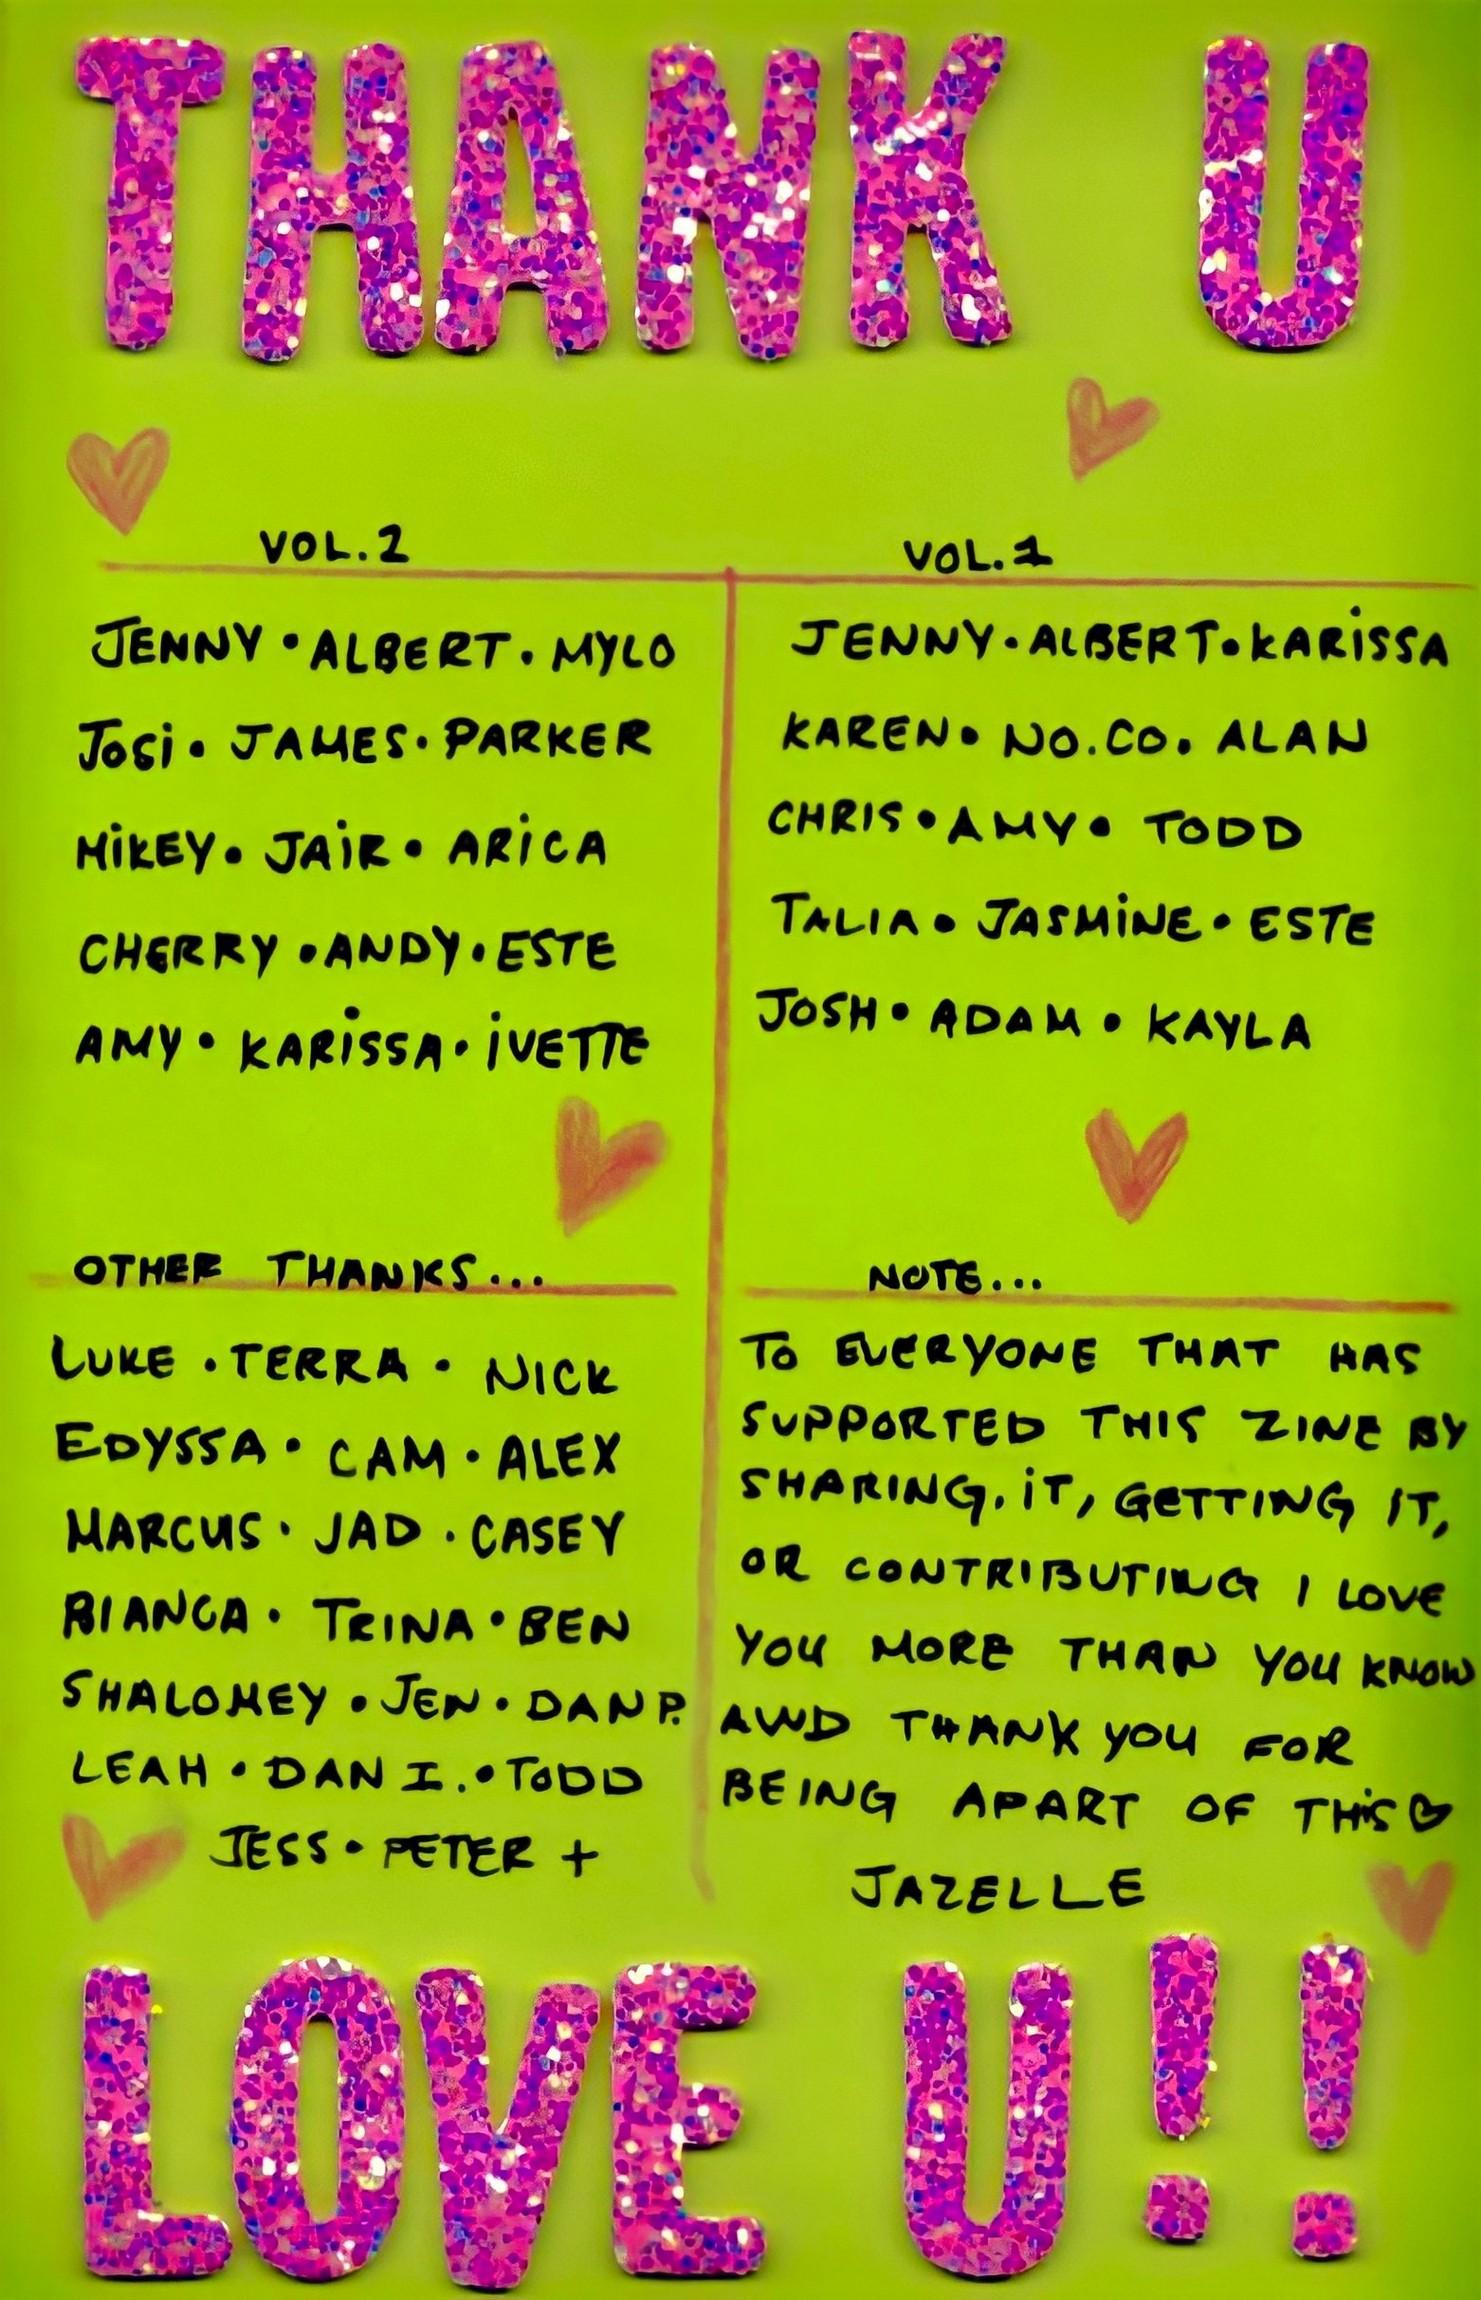 THANK U
VOL.2
JENNY • ALBERT • MYLO
JOSi • JAMES • PARKER
MiKEY • JAiR • ARiCA
CHERRY • ANDY • ESTE
AMY • KARiSSA • iVETTE
VOL.1
JENNY • ALBERT • KARiSSA
KAREN • NO.CO. ALAN
CHRIS • AMY • TODD
TALIA • JASMiNE • ESTE
JOSH • ADAM • KAYLA
OTHER THANKS...
LUKE • TERRA • NICK
EDYSSA • CAM • ALEX
MARCUS • JAD • CASEY
BIANCA • TRINA • BEN
SHALOMEY • JEN • DAN P.
LEAH • DAN I. • TODD
JESS • PETER +
NOTE...
TO EVERYONE THAT HAS
SUPPORTED THIS ZINE BY
SHARING, iT, GETTING IT,
OR CONTRIBUTING I LOVE
YOU MORE THAN YOU KNOW
AND THANK YOU FOR
BEING APART OF THiS ♡
JAZELLE
LOVE U!!